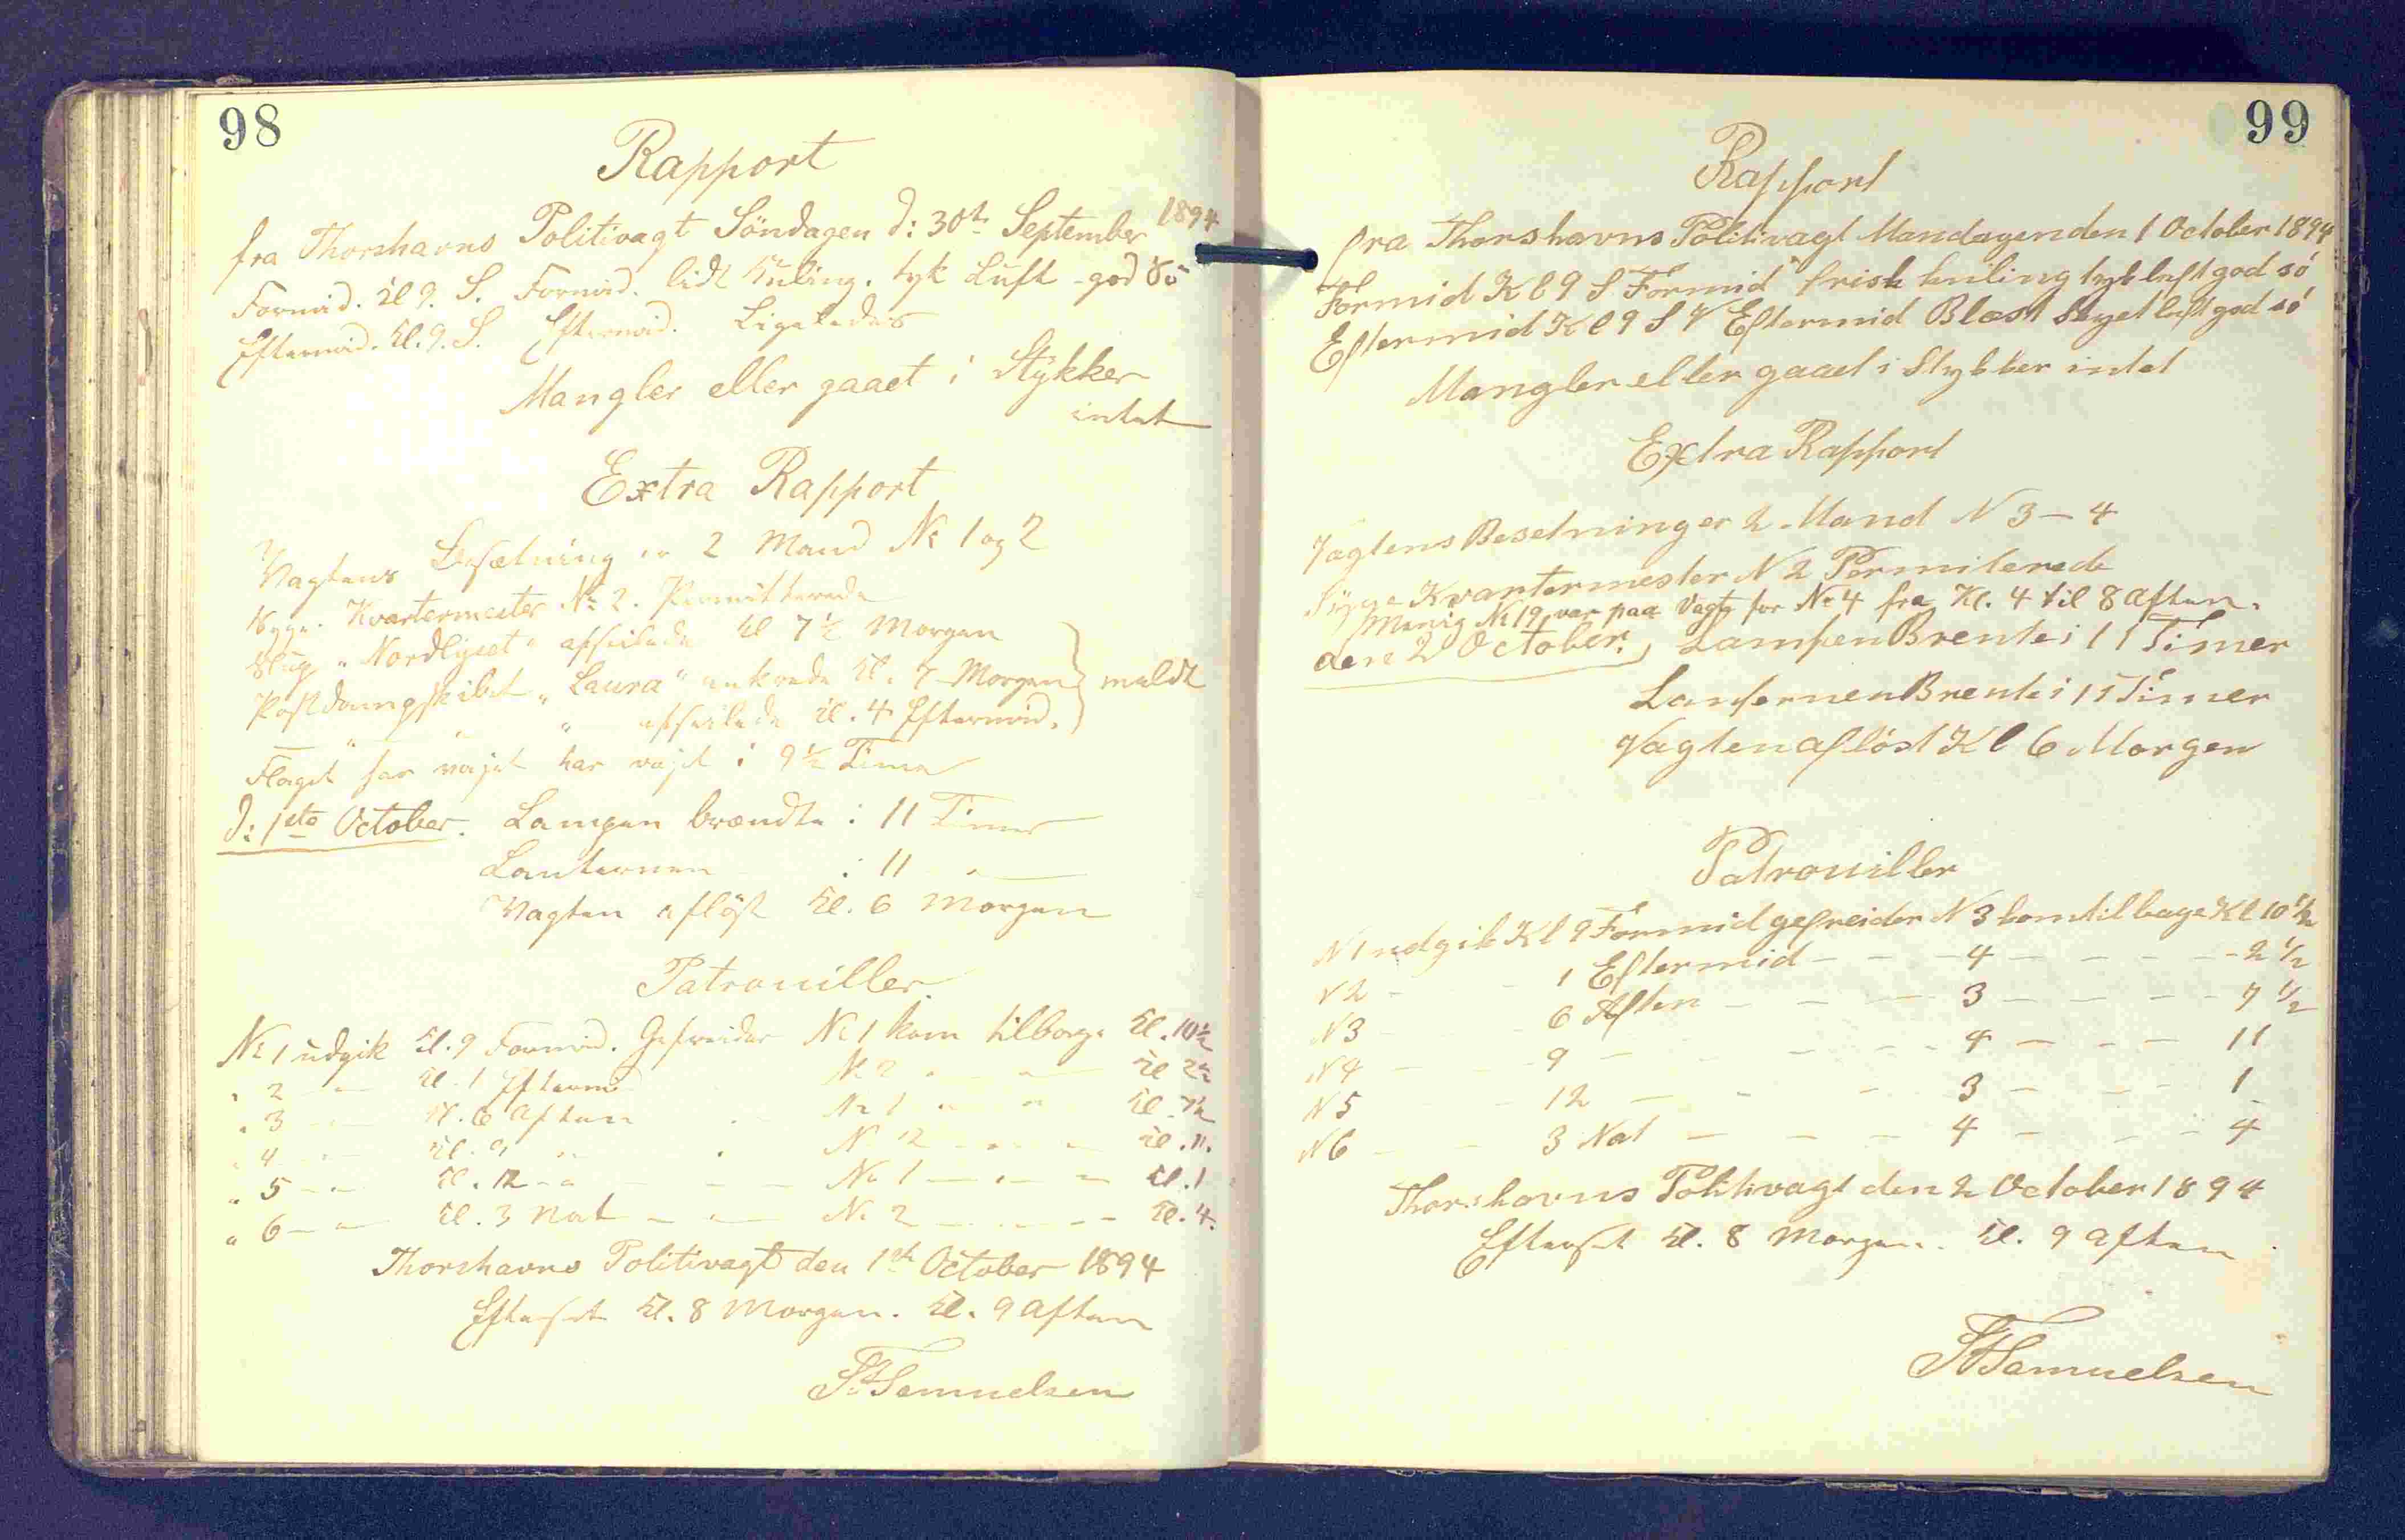 98
Rapport
fra Thorshavns Politivagt Söndagen d: 30te September 1894
Formid. Kl 9. S. Formid. lidt Kuling. tyk Luft - god Sö
Eftermid. Kl. 9. S. Eftermid. Ligeledes
Mangler eller gaaet i Stykker
intet
Extra Rapport
Vagtens Besætning er 2 Mand No 1 og 2
Syge. Kvartermester No 2. Permitterede
Slup "Nordlyset" afseilede Kl 7½ Morgen
Postdampskibet "Laura" ankrede Kl. 7 Morgen } meldt
" " " afseilede Kl. 4 Eftermid.
Flaget har vajet har vajet i 9½ Time
d: 1ste October. Lampen brændte i 11 Timer
Lanternen i 11 "
Vagten aflöst Kl. 6 Morgen
Patrouiller
No 1 udgik Kl. 9 Formid. Gefreider No 1 kom tilbage Kl. 10½
" 2 - " - Kl. 1 Eftermid No 2 " - " - Kl 2½
" 3 - " - Kl. 6 Aften No 1 " " Kl. 7½
" 4 - " - Kl. 9 " " No 2 - " - " - Kl. 11.
" 5 - " - Kl. 12 - " - - - No 1 - " - - Kl. 1
" 6 - " - Kl. 3 Nat - " - No 2 - - - - Kl. 4.
Thorshavns Politivagt den 1ste October 1894
Efterset Kl. 8 Morgen. Kl. 9 Aften
Samuelsen
99
Rapport
fra Thorshavns Politivagt Mandagen den 1 October 1894
Formid Kl 9 S. Formid frisk kuling tyk luft god sö
Eftermid Kl 9 S V Eftermid Blæst Skyet luft god sö
Mangler eller gaaet i Stykker intet
Extra Rapport
Vagtens Besetning er 2 Mand N 3 - 4
Syge Kvartermester N 2 Permiterede
Menig No 19 var paa Vagt for No 4 fra Kl. 4 til 8 Aften.
den 2 October. Lampen Brente i 11 Timer
Lanternen Brente i 11 Timer
Vagten aflöst Kl 6 Morgen
Patrouiller
N 1 udgik Kl 9 Formid gefreider N 3 kom tilbage Kl 10 1/2
N 2 - - 1 Eftermid - - - 4 - - - - - 2 1/2
N 3 - - 6 Aften - - - 3 - - - - 7 1/2
N 4 - - 9 - - - - 4 - - - 11
N 5 - - 12 - - - 3 - - - 1
N 6 - - 3 Nat - - - 4 - - - 4
Thorshavns Politivagt den 2 October 1894
Efterset Kl. 8 Morgen. Kl. 9 Aften
Samuelsen